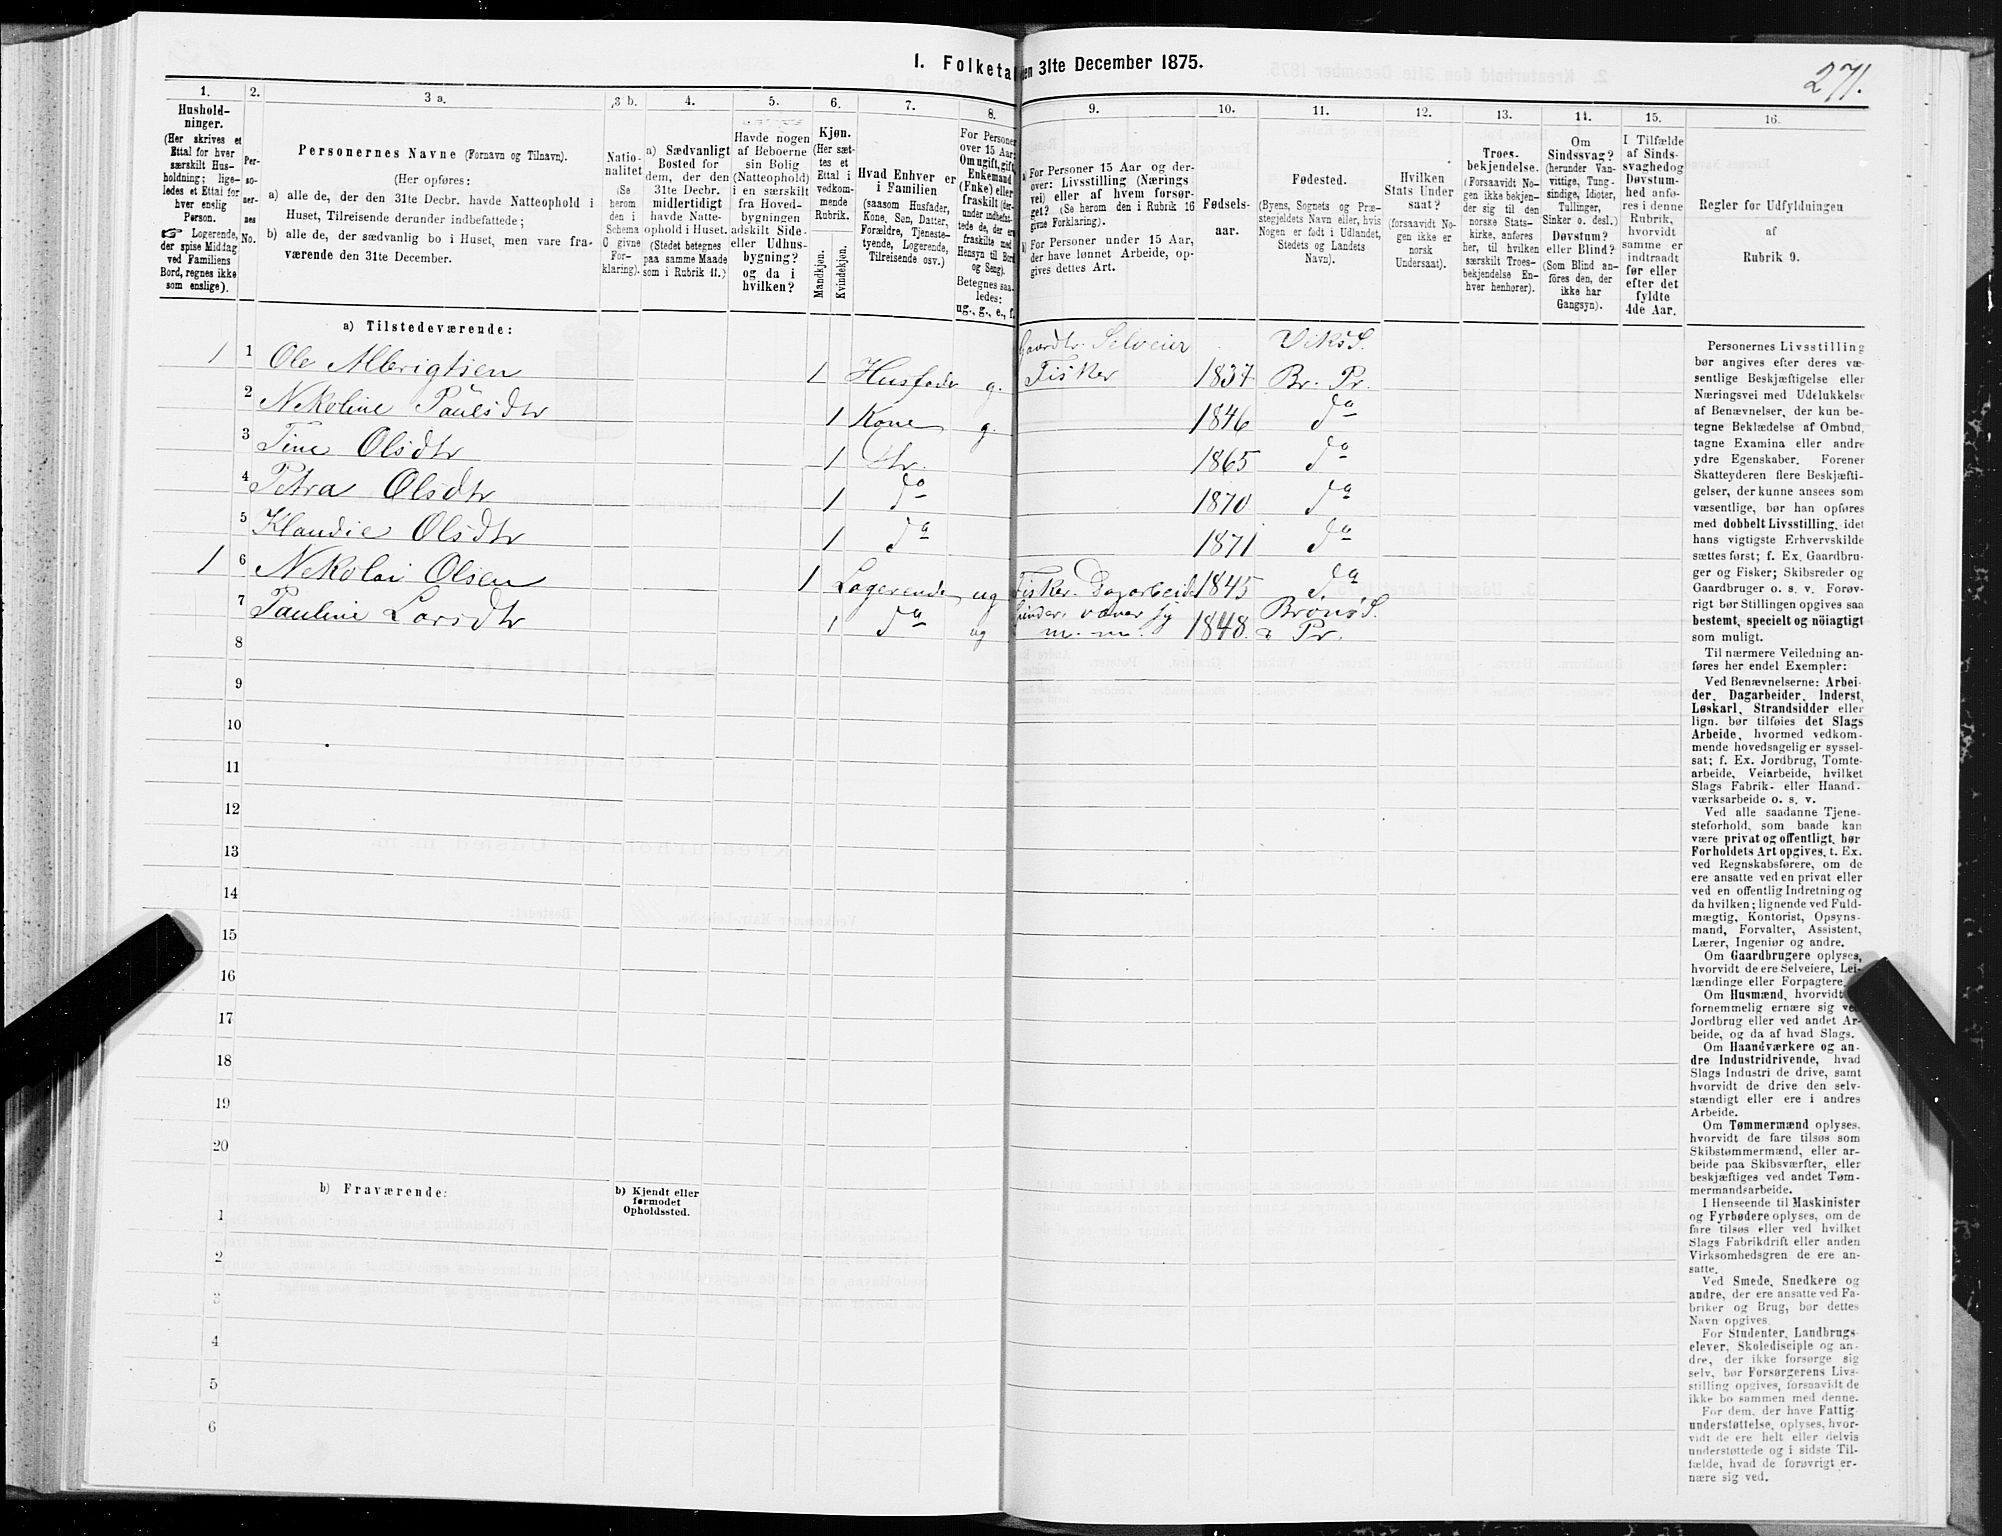 I. Folketal den 31te December 1875.
271.
1.
2.
3 a.
3 b.
4.
5.
6.
7.
8.
9.
10.
11.
12.
13.
14.
15.
16.
Hushold-
ninger.
(Her skrives et
Ettal for hver
særskilt Hus-
holdning; lige-
ledes et Ettal for
hver enslig
Person.
☞ Logerende,
der spise Middag
ved Familiens
Bord, regnes ikke
som enslige).
Per-
so-
ner-
nes
No.
Personernes Navne (Fornavn og Tilnavn).
(Her opføres:
a) alle de, der den 31te Decbr. havde Natteophold i
Huset, Tilreisende derunder indbefattede;
b) alle de, der sædvanlig bo i Huset, men vare fra-
værende den 31te December.
Natio-
nalitet
(Se
herom
den i
Schema
C givne
For-
klaring).
a) Sædvanligt
Bosted for
dem, der den
31te Decbr.
midlertidigt
havde Natte-
ophold i Huset.
(Stedet betegnes
paa samme Maade
som i Rubrik 11.)
Havde nogen
af Beboerne
sin Bolig
(Natteophold)
i en særskilt
fra Hoved-
bygningen
adskilt Side-
eller Udhus-
bygning?
og da i
hvilken?
Kjøn.
(Her sæt-
tes et
Ettal i
vedkom-
mende
Rubrik.
Mandkjøn.
Kvindekjøn.
Hvad Enhver er
i Familien
(saasom Husfader,
Kone, Søn, Datter,
Forældre, Tjeneste-
tyende, Logerende,
Tilreisende osv.)
For Personer
over 15 Aar:
Om ugift, gift,
Enkemand
(Enke) eller
fraskilt (der-
under indbefat-
tede de, der ere
fraskilte med
Hensyn til Bord
og Seng).
Betegnes saa-
ledes:
ug., g., e., f.
a) For Personer 15 Aar og der-
over: Livsstilling (Nærings
vei) eller af hvem forsør-
get? (Se herom den i Rubrik 16
givne Forklaring).
b) For Personer under 15 Aar,
der have lønnet Arbeide, op-
gives dettes Art.
Fødsels-
aar.
Fødested.
(Byens, Sognets og Præ-
stegjeldets Navn eller, hvis
Nogen er født i Udlandet,
Stedets og Landets
Navn).
Hvilken
Stats Under
saat?
(forsaavidt No-
gen ikke er
norsk
Undersaat).
Troes-
bekjendelse.
(Forsaavidt No-
gen ikke bekjen-
der sig til den
norske Stats-
kirke, anføres
her, til hvilken
særskilt Troes-
bekjendelse En-
hver henhører).
Om
Sindssvag?
(herunder Van-
vittige, Tung-
sindige, Idioter,
Tullinger,
Sinker o. desl.)
Døvstum?
eller Blind?
(Som Blind an-
föres den, der
ikke har
Gangsyn).
I Tilfælde
af Sinds-
svaghed og
Døvstum-
hed anfø-
res i denne
Rubrik,
hvorvidt
samme er
indtraadt
før eller
efter det
fyldte
4de Aar.
Regler for Udfyldningen
af
Rubrik 9.
a) Tilstedeværende:
1 1 Ole Albrigtsen 1 Husfader g. Gaardbr. Selveier Fisker 1837 Vik S. Br. Pr.
2 Nekoline Paulsdtr 1 Kone g. 1846 do
3 Tine Olsdtr 1 Dtr. 1865 do
4 Petra Olsdtr 1 do 1870 do
5 Klaudie Olsdtr 1 do 1871 do
1 6 Nekolai Olsen 1 Logerende ug Fisker. Dagarbeider 1845 do
7 Pauline Larsdtr 1 do ug væver sy m. m. 1848. Brønø S. Pr.
8
9
10
11
12
13
14
15
16
17
18
19
20
b) Fraværende:
b) Kjendt eller
formodet
Opholdssted.
1
2
3
4
5
6
Personernes Livsstilling
bør angives efter deres væ-
sentlige Beskjæftigelse eller
Næringsvei med Udelukkelse
af Benævnelser, der kun be-
tegne Beklædelse af Ombud,
tagne Examina eller andre
ydre Egenskaber. Forener
Skatteyderen flere Beskjæfti-
gelser, der kunne ansees som
væsentlige, bør han opføres
med dobbelt Livsstilling, idet
hans vigtigste Erhvervskilde
sættes først; f. Ex. Gaardbru-
ger og Fisker; Skibsreder og
Gaardbruger o. s. v. Forøv-
rigt bør Stillingen opgives saa
bestemt, specielt og nöiagtigt
som muligt.
Til nærmere Veiledning an-
føres her endel Exempler:
Ved Benævnelserne: Arbei-
der, Dagarbeider, Inderst,
Løskarl, Strandsidder eller
lign. bør tilføies det Slags
Arbeide, hvormed vedkom-
mende hovedsagelig er syssel-
sat; f. Ex. Jordbrug, Tomte-
arbeide, Veiarbeide, hvilket
Slags Fabrik- eller Haand-
værksarbeide o. s. v.
Ved alle saadanne Tjene-
steforhold, som baade kan
være privat og offentligt, bør
Forholdets Art opgives, t. Ex.
ved Regnskabsførere, om de
ere ansatte ved en privat eller
ved en offentlig Indretning og
da hvilken; lignende ved Fuld-
mægtig, Kontorist, Opsyns-
mand, Forvalter, Assistent,
Lærer, Ingeniør og andre.
Om Gaardbrugere oplyses,
hvorvidt de ere Selveiere, Lei-
lændinge eller Forpagtere.
Om Husmænd, hvorvidt de
fornemmelig ernære sig ved
Jordbrug eller ved andet Ar-
beide, og da af hvad Slags.
Om Haandværkere og an-
dre Industridrivende, hvad
Slags Industri de drive, samt
hvorvidt de drive den selv-
stændigt eller ere i andres
Arbeide.
Om Tømmermænd oplyses,
hvorvidt de fare tilsøs som
Skibstømmermænd, eller ar-
beide paa Skibsværfter, eller
beskjæftiges ved andet Tøm-
mermandsarbeide.
I Henseende til Maskinister
og Fyrbødere oplyses, om de
fare tilsøs eller ved hvilket
Slags Fabrikdrift eller anden
Virksomhedsgren de ere an-
satte.
Ved Smede, Snedkere og
andre, der ere ansatte ved Fa-
briker og Brug, bør dettes
Navn opgives.
For Studenter, Landbrugs-
elever, Skoledisciple og an-
dre, der ikke forsørge sig
selv, bør Forsørgerens Livs-
stilling opgives, forsaavidt de
ikke bo sammen med denne.
For dem, der have Fattig-
understøttelse, oplyses, hvor-
vidt de ere helt eller delvis
understøttede og i sidste Til-
fælde, hvad de forøvrigt er-
nære sig ved.